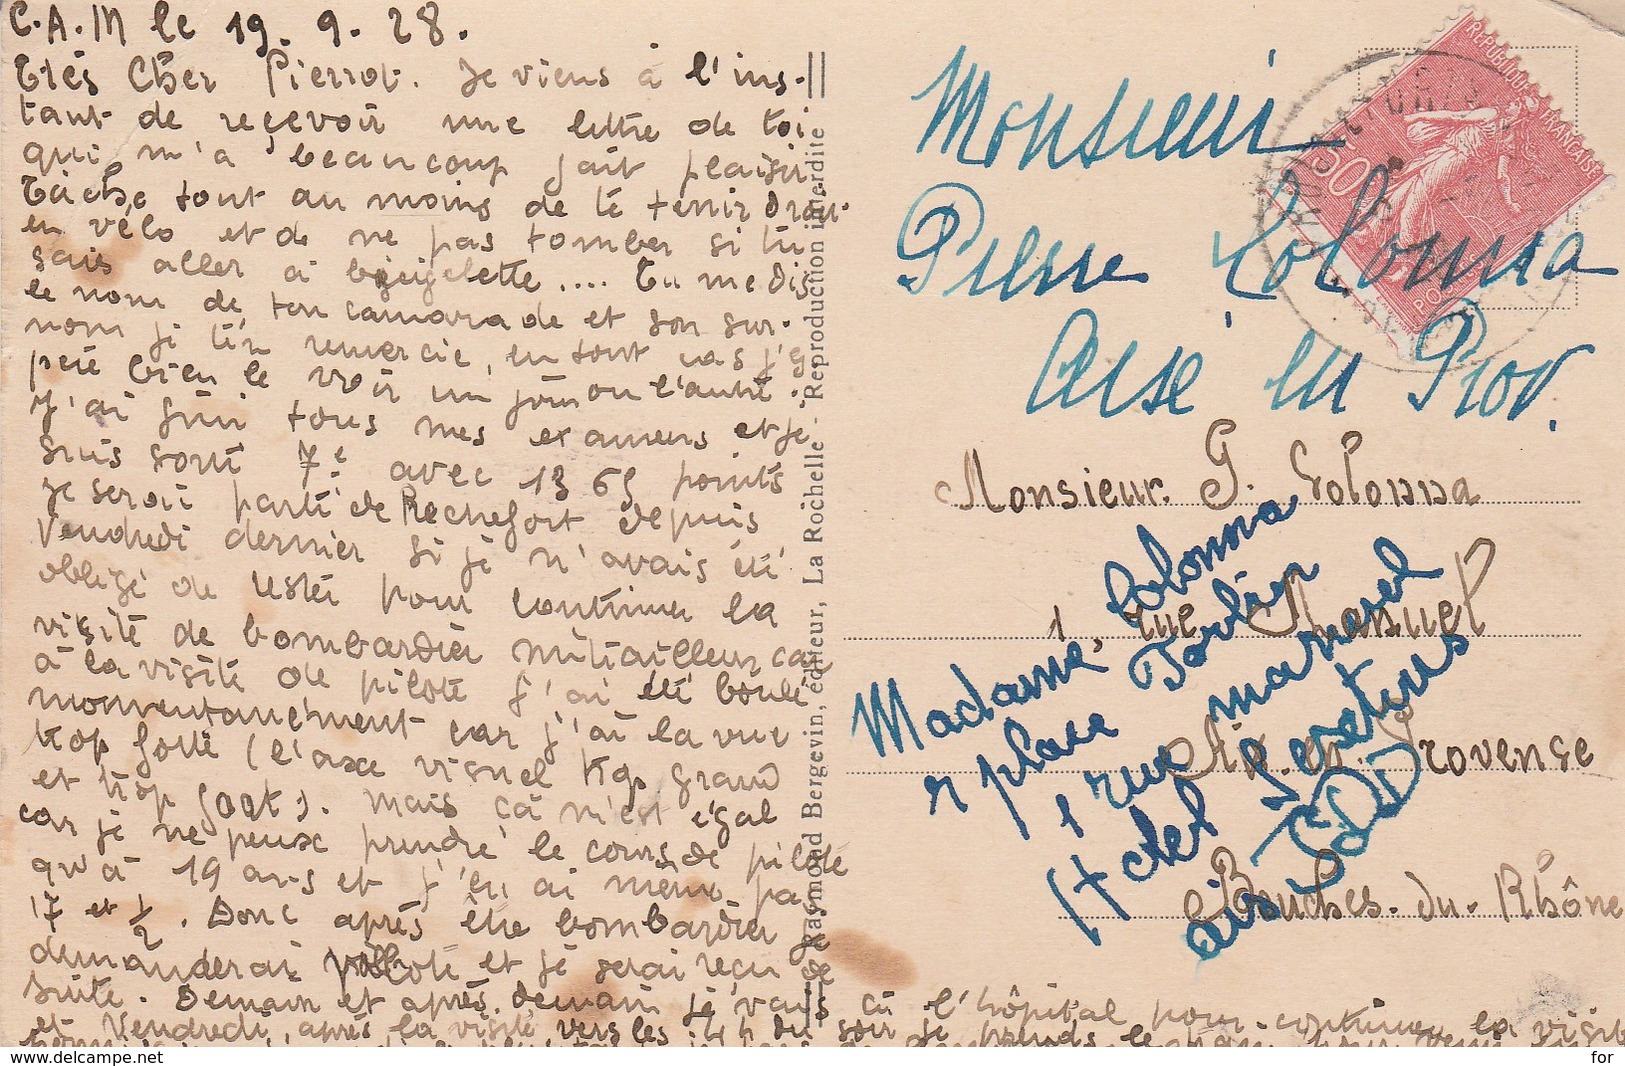 C.A.M le 19. 9. 28.
Très Cher Pierrot. Je viens à l'ins-
tant de reçevoir une lettre de toi
qui m'a beaucoup fait plaisir.
Tâche tout au moins de te tenir droit
en vélo et de ne pas tomber si tu
sais aller à bicyclette.... Tu me dis
le nom de ton camarade et son sur-
nom je t'en remercie, en tout cas j'es
père bien le voir un jour ou l'autre.
J'ai fini tous mes examens et je
suis sorti 7e avec 1365 points
je serais parti de Rochefort depuis
Vendredi dernier si je n'avais été
obligé de rester pour continuer la
visite de bombardier mitrailleur car
à la visite de pilote j'ai été boulé
momentanément car j'ai la vue
trop forte (l'axe visuel trop grand
et trop fort). Mais ça m'est égal
car je ne peux prendre le cours de pilote
qu'à 19 ans et j'en ai même pas
17 et 1/2. Donc après être bombardier je
demanderai pilote et je serai reçu de
suite. Demain et après demain je vais à l'hôpital pour continuer la visite
et Vendredi, après la visite vers les 4 h du soir je prends le
Raymond Bergevin, éditeur, La Rochelle - Reproduction interdite
REPUBLIQUE FRANÇAISE
50c
POSTES
Monsieur
Pierre Colonna
Aise en Prov.
Monsieur. P. Colonna
1, rue Manuel
Aix en Provense
Bouches-du-Rhône
Madame Colonna
place
1 rue mararel
Hotel
aix